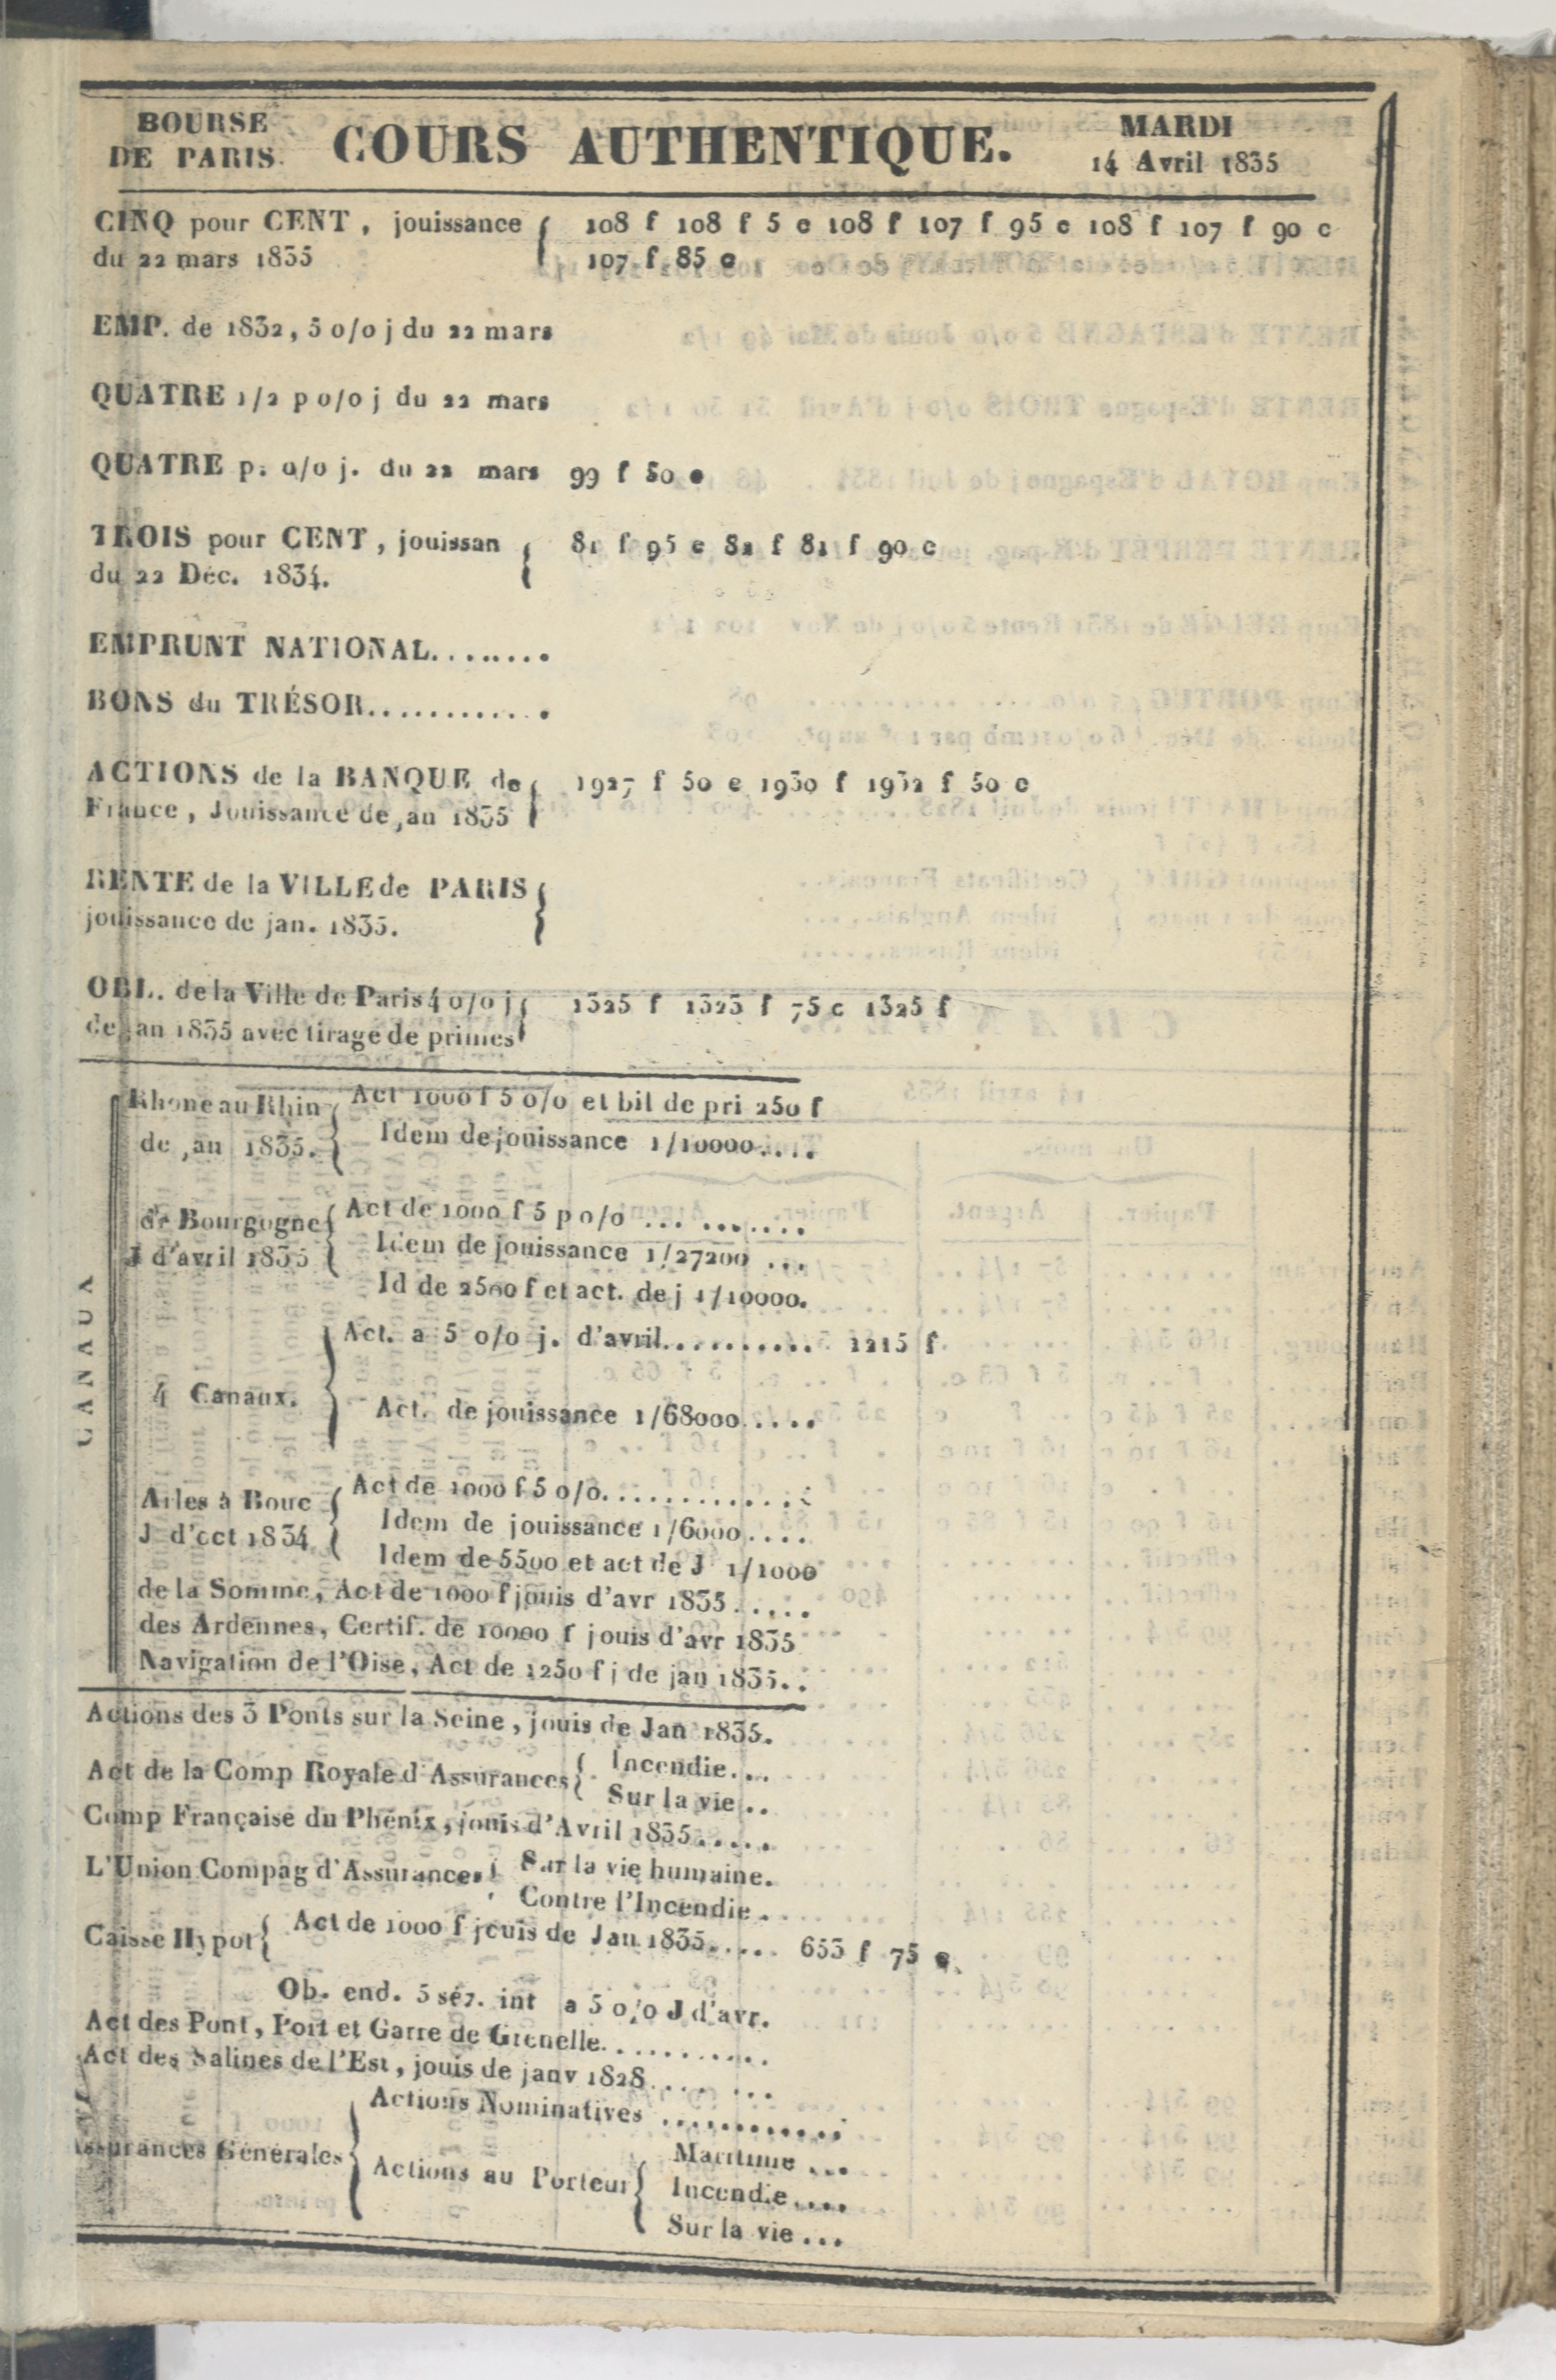 BOURSE
DE PARIS.
COURS AUTHENTIQUE.
MARDI
14 Avril 1835
CINQ pour CENT, jouissance { 108 f 108 f 5 c 108 f 107 f 95 c 108 f 107 f 90 c
du 22 mars 1835 107 f 85 c
EMP. de 1832, 5 o/o j du 22 mars
QUATRE 1/2 p o/o j du 22 mars
QUATRE p. o/o j. du 22 mars 99 f 50 c
TROIS pour CENT, jouissan { 81 f 95 c 82 f 81 f 90 c
du 22 Déc. 1834.
EMPRUNT NATIONAL........
BONS du TRÉSOR............
ACTIONS de la BANQUE de { 1927 f 50 c 1930 f 1932 f 50 c
France, Jouissance de jan 1835
RENTE de la VILLE de PARIS {
jouissance de jan. 1835.
OBL. de la Ville de Paris 4 o/o j { 1325 f 1323 f 75 c 1325 f
de jan 1835 avec tirage de primes
CANAUX
Rhone au Rhin { Act 1000 f 5 o/o et bil de pri 250 f
de jan 1835. Idem de jouissance 1/10000....
de Bourgogne { Act de 1000 f 5 p o/o ... .......
J d'avril 1835 Idem de jouissance 1/27200 ...
Id de 2500 f et act. de j 1/10000.
4 Canaux. { Act. a 5 o/o j. d'avril.......... 1215 f
Act. de jouissance 1/68000.....
Arles à Bouc { Act de 1000 f 5 o/o.............
J d'oct 1834 Idem de jouissance 1/6000....
Idem de 5500 et act de J 1/1000
de la Somme, Act de 1000 f jouis d'avr 1835.....
des Ardennes, Certif. de 10000 f jouis d'avr 1835
Navigation de l'Oise, Act de 1250 f j de jan 1835..
Actions des 3 Ponts sur la Seine, jouis de Jan 1835.
Act de la Comp Royale d'Assurances { Incendie...
Sur la vie..
Comp Française du Phénix, jouis d'Avril 1835.....
L'Union Compag d'Assurances { Sur la vie humaine.
Contre l'Incendie.
Caisse Hypot { Act de 1000 f jouis de Jan 1835..... 653 f 75 c.
Ob. end. 5 séz. int a 5 o/o J d'avr.
Act des Pont, Port et Garre de Grenelle...........
Act des Salines de l'Est, jouis de janv 1828.... ...
Assurances Générales { Actions Nominatives .............
Actions au Porteur { Maritime ...
Incendie....
Sur la vie...